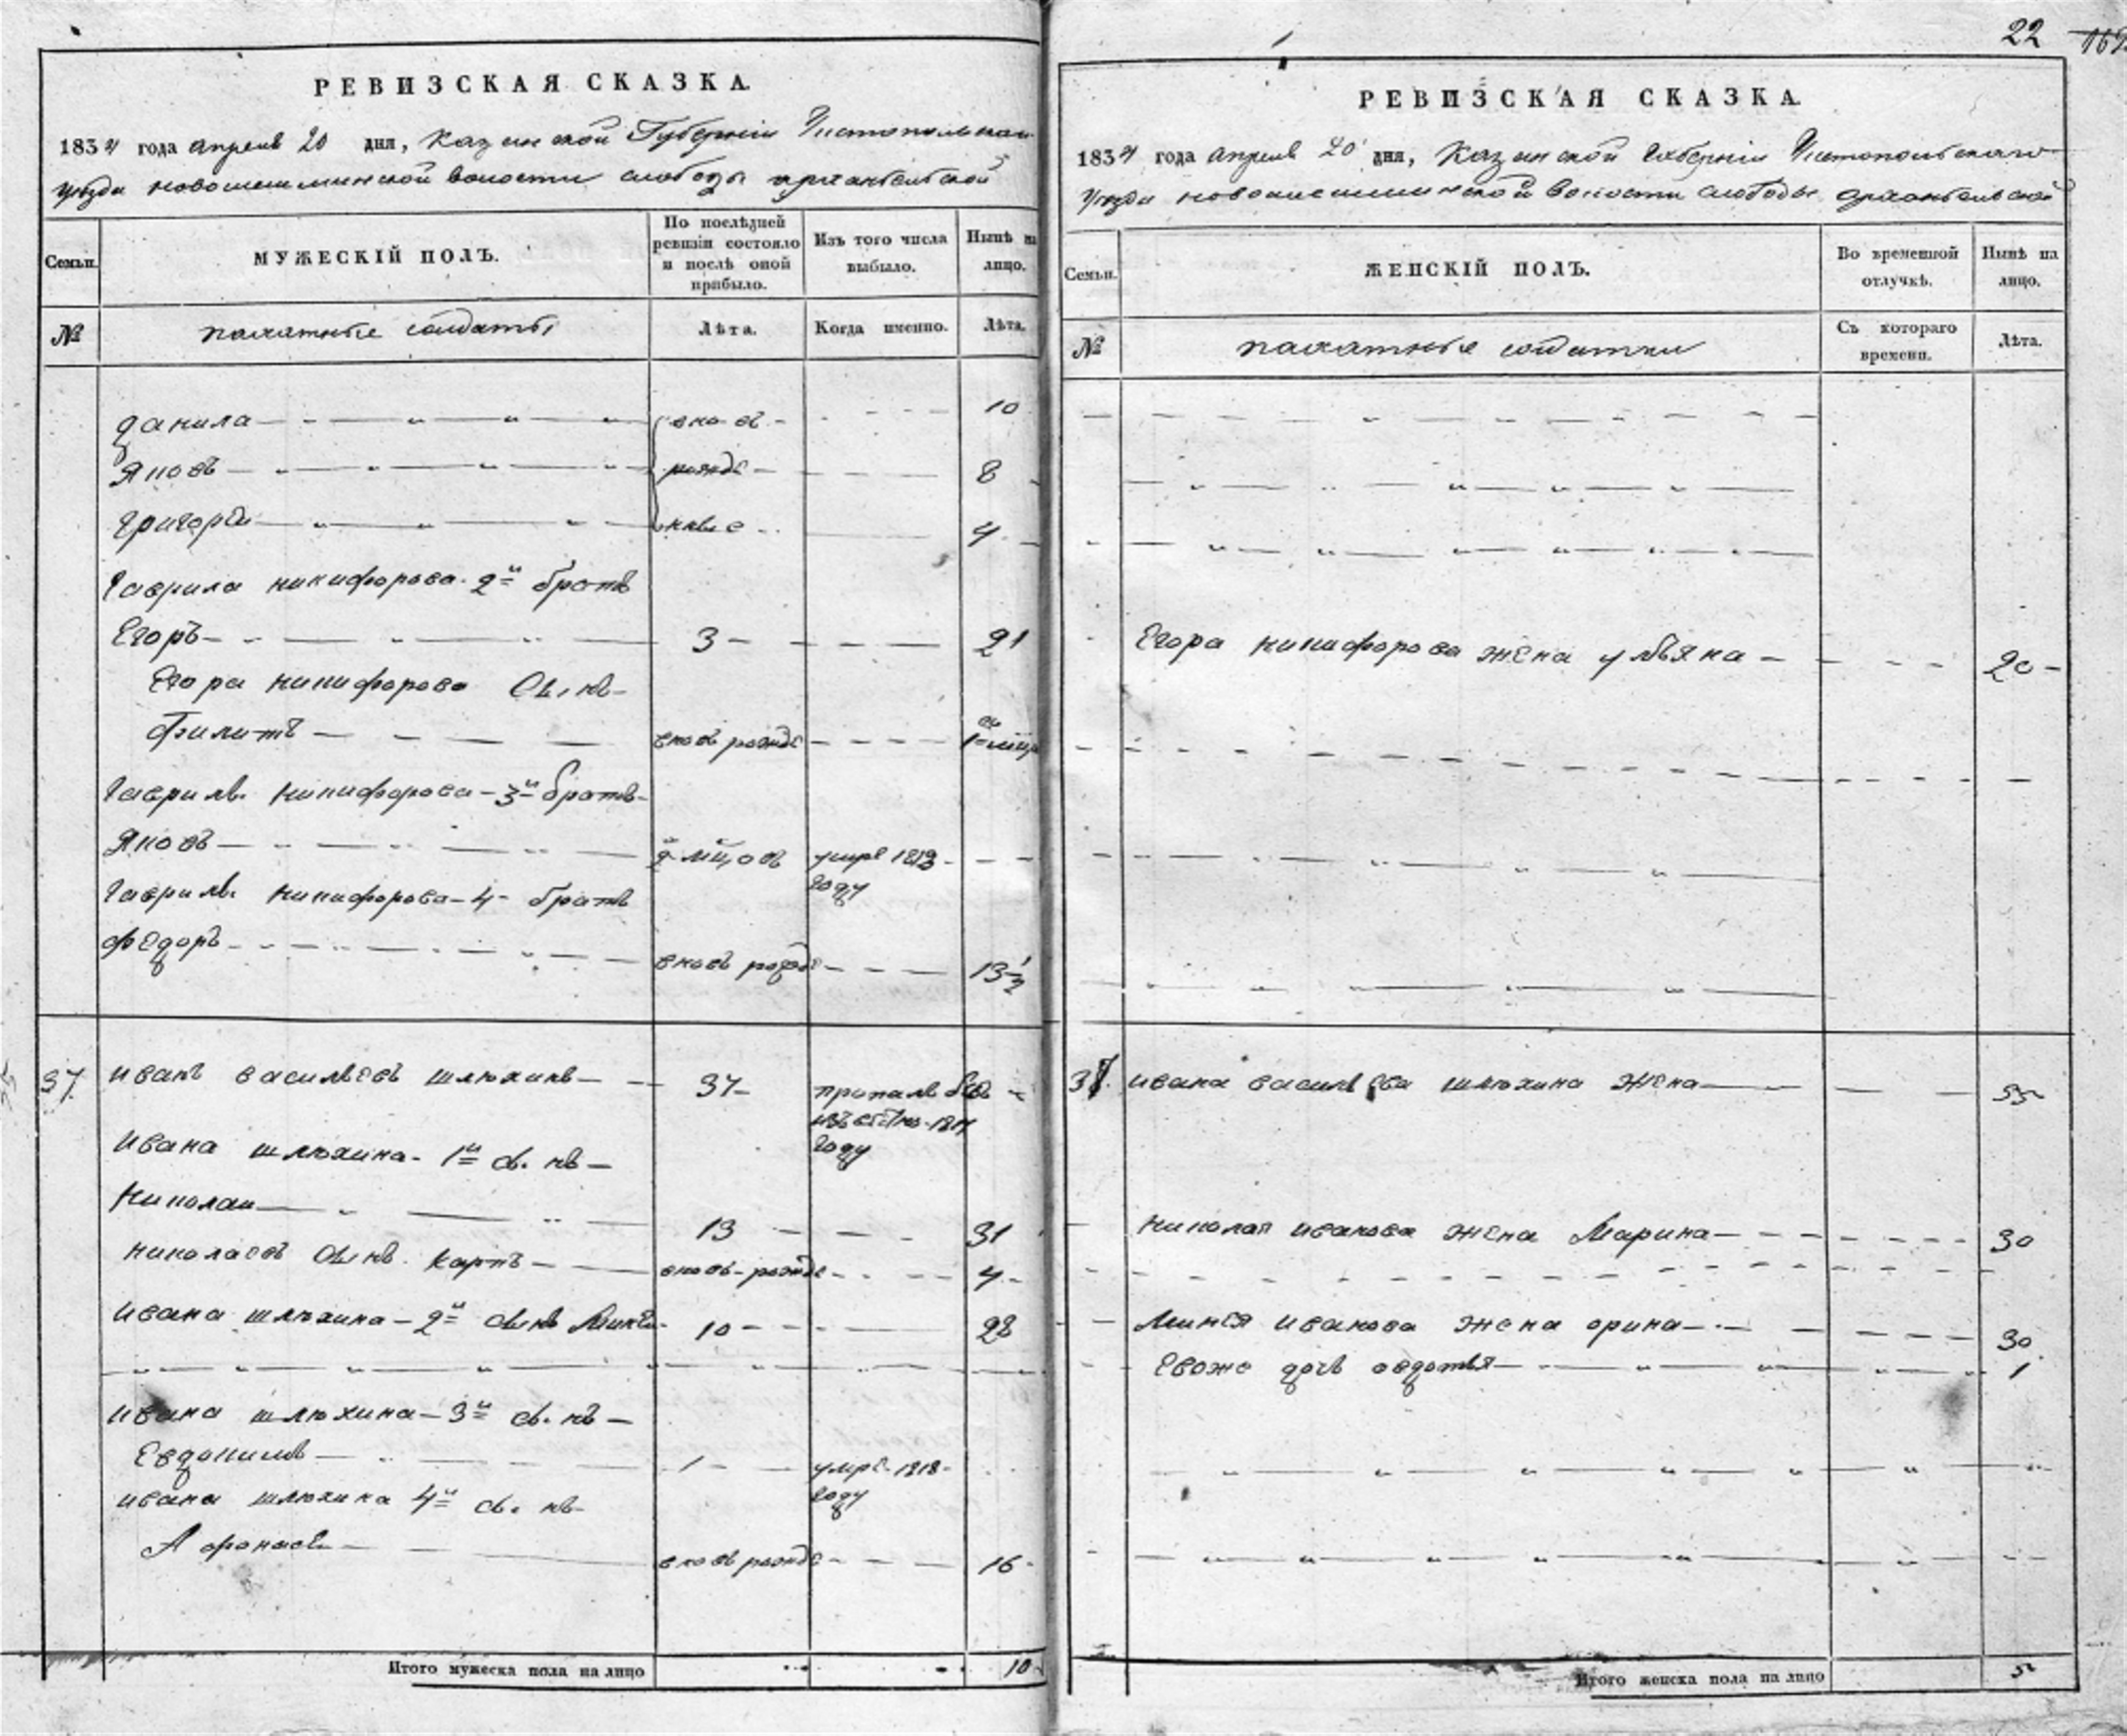 22
РЕВИЗСКАЯ СКАЗКА.
1834 года апреля 20 дня, Казанской Губернии Чистопольскаго
уезда новошешминской волости слободы архангельской
Семьи.
МУЖЕСКІЙ ПОЛЪ.
По послѣдней ревизіи состояло и послѣ оной прибыло.
Изъ того числа выбыло.
Нынѣ на лицо.
№
пахатные солдаты
Лѣта.
Когда именно.
Лѣта.
Данила вновь 10
Яковъ рожде 8
Григорей ные 4
Гаврила никифорова 2й братъ
Егоръ 3 21
Егора никифорова сынъ
Филипъ вновь рожде
Гаврилы никифорова 3й братъ
Яковъ умре 1813 году
Гаврилы никифорова 4 братъ
Федоръ вновь рожде 13 1/2
37 Иванъ васильевъ шлюхинъ 37 пропалъ безъизвестно 1817 году
Ивана шлюхина 1й сынъ
Николай 13 31
Николаевъ сынъ Карпъ вновь рожде 4
Ивана шлюхина 2й сынъ Миней 10 28
Ивана шлюхина 3й сынъ
Евдокимъ 1 умре 1818 году
Ивана шлюхина 4й сынъ
Афонасей вновь рожде 16
Итого мужеска пола на лицо 10
РЕВИЗСКАЯ СКАЗКА.
1834 года апреля 20 дня, Казанской Губерніи Чистопольскаго
уезда новошешминской волости слободы архангельской
Семьи.
ЖЕНСКІЙ ПОЛЪ.
Во временной отлучкѣ.
Нынѣ на лицо.
№
пахатные солдатки
Съ котораго времени.
Лѣта.
Егора никифорова жена ульяна 20
37 Ивана васильева шлюхина жена 55
Николая иванова жена Марина 30
Минея иванова жена орина 30
Евоже дочь авдотья 1
Итого женска пола на лицо 5